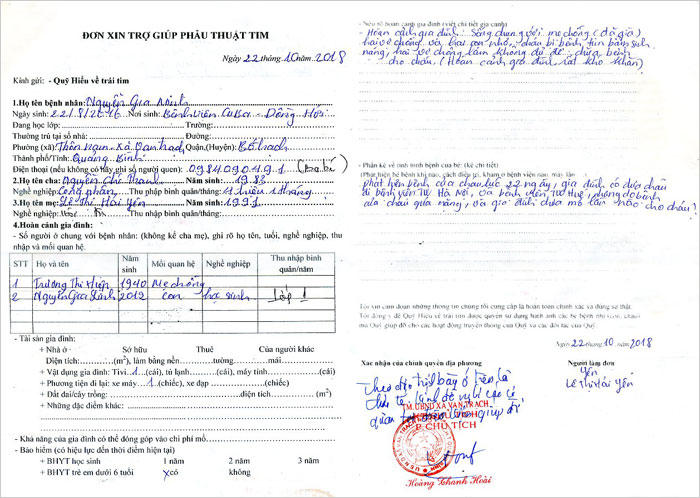 ĐƠN XIN TRỢ GIÚP PHẪU THUẬT TIM
Ngày 22 tháng 10 năm 2018
Kính gửi: - Quỹ Hiểu về trái tim
1.Họ tên bệnh nhân: Nguyễn Gia Minh
Ngày sinh: 22/8/2016 Nơi sinh: Bệnh viện CuBa - Đồng Hới
Đang học lớp: Trường:
Thường trú tại số nhà: Đường:
Phường (xã): Thôn Xã Vạn Trạch Quận,(Huyện): Bố Trạch
Thành phố/Tỉnh: Quảng Bình
Điện thoại (nếu không có hãy ghi số người quen): 0984090491
2.Họ tên cha: Nguyễn Chí Thanh Năm sinh: 1983
Nghề nghiệp: Công nhân Thu nhập bình quân/tháng: 4 triệu 1 tháng
3.Họ tên mẹ: Lê Thị Hải Yến Năm sinh: 1991
Nghề nghiệp: Thu nhập bình quân/tháng:
4.Hoàn cảnh gia đình:
- Số người ở chung với bệnh nhân: (không kể cha mẹ), ghi rõ họ tên, tuổi, nghề nghiệp, thu
nhập và mối quan hệ.
STT Họ và tên Năm sinh Mối quan hệ Nghề nghiệp Thu nhập bình quân/năm
1 Trương Thị Hiện 1940 Mẹ chồng
2 Nguyễn Gia Linh 2012 con học sinh Lớp 1
- Tài sản gia đình:
+ Nhà ở : Sở hữu Thuê Của người khác
Diện tích: (m²), làm bằng nền: tường: mái:
+ Vật dụng gia đình: Tivi 1 (cái), tủ lạnh (cái), máy tính (cái)
+ Phương tiện đi lại: xe máy 1 (chiếc), xe đạp (chiếc)
+ Đất đai/cây trồng: diện tích (m²)
+ Những đặc điểm khác:
- Khả năng của gia đình có thể đóng góp vào chi phí mổ
- Bảo hiểm (có hiệu lực đến thời điểm hiện tại)
+ BHYT học sinh 1 năm 2 năm 3 năm
+ BHYT trẻ em dưới 6 tuổi x có không
- Nêu rõ hoàn cảnh gia đình (viết chi tiết gia cảnh)
- Hoàn cảnh gia đình: Sống chung với mẹ chồng (đã già)
hai vợ chồng và hai con nhỏ, cháu bị bệnh tim bẩm sinh
nặng, hai vợ chồng làm không đủ để chữa bệnh
cho cháu. (Hoàn cảnh gia đình rất khó khăn)
- Phần kể về tình hình bệnh của bé: (kể chi tiết)
(Phát hiện bé bệnh khi nào, cách điều trị, khám ở bệnh viện nào, mấy lần
phát hiện bệnh của cháu lúc 22 ngày, gia đình có đưa cháu
đi bệnh viện TW Hà Nội, và bệnh viện TW Huế, do bệnh
của cháu quá nặng, và gia đình chưa mổ lần nào cho cháu.
Tôi xin cam đoan những thông tin chúng tôi cung cấp là hoàn toàn chính xác và đúng sự thật.
Tôi đồng ý để Quỹ Hiểu về trái tim được quyền sử dụng hình ảnh các bé bệnh nhi trước, sau
mổ Quỹ giúp đỡ cho các hoạt động truyền thông của Quỹ và các đối tác của Quỹ.
Ngày 22 tháng 10 năm 2018
Xác nhận của chính quyền địa phương Người làm đơn
Theo đơn trình bày ở trên là
quan tâm giúp đỡ
Yến
Lê Thị Hải Yến
TM. UBND XÃ VẠN TRẠCH
P. CHỦ TỊCH
Hoàng Thanh Hoài